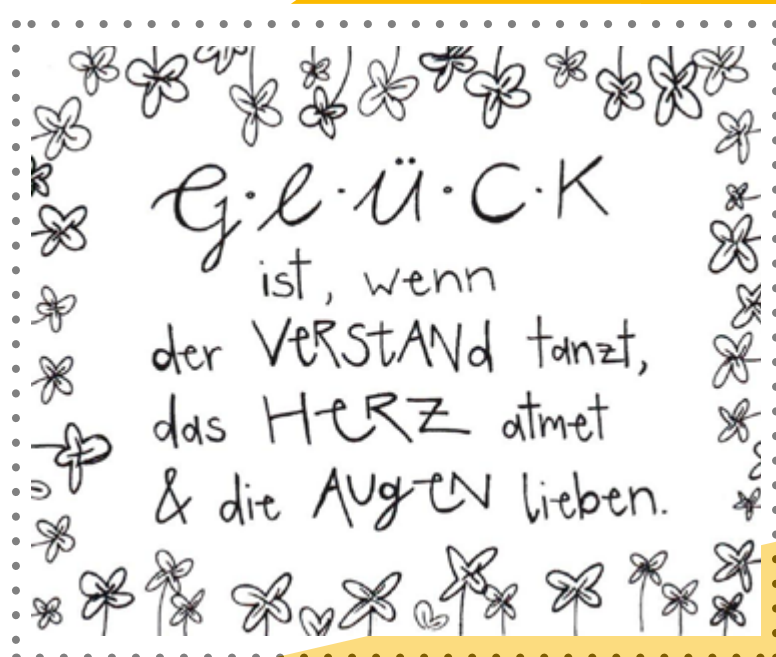 G·l·ü·C·K
ist, wenn
der VeRStANd tanzt,
das HeRZ atmet
& die AUgeN lieben.